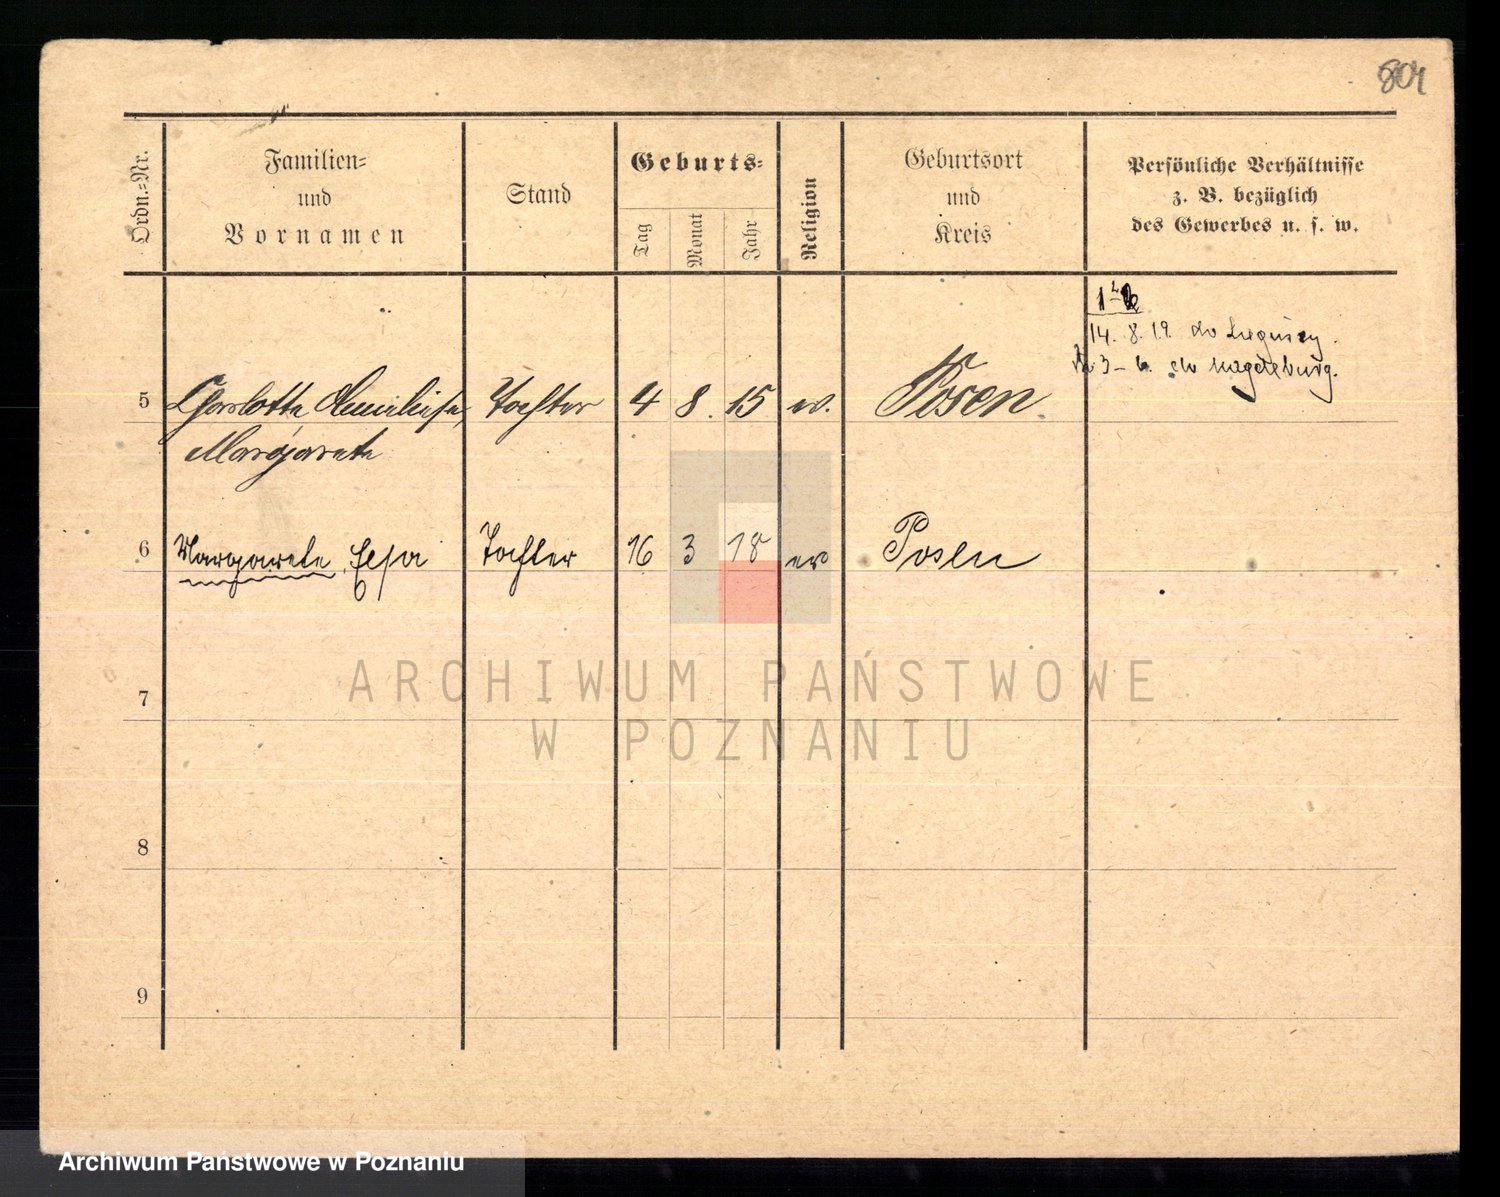 804
Ordn.=Nr.
Familien=
und
Vornamen
Stand
Geburts=
Tag
Monat
Jahr
Religion
Geburtsort
und
Kreis
Persönliche Verhältnisse
z. B. bezüglich
des Gewerbes u. s. w.
14. 8. 19.
3 – 6. Magdeburg.
5 Charlotte Tochter 4 8. 15 ev. Posen.
Margarete
6 Margarete, Elsa Tochter 16 3 18 ev Posen
7
8
9
ARCHIWUM PAŃSTWOWE
W POZNANIU
Archiwum Państwowe w Poznaniu